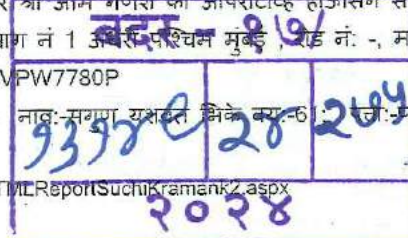 र श्री ओम नगरी को ऑपरेटिव्ह हौऊसिंग स
बदर - १७
ाग नं 1 अंधेरी पश्चिम मुंबई , रोड नं: -, म
VPW7780P
नाव:-सगुण यशवंत भिके वय:-61; पत्ता:-
१३१४९ २४ २७५
TMLReportSuchiKramank2.aspx
२०२४